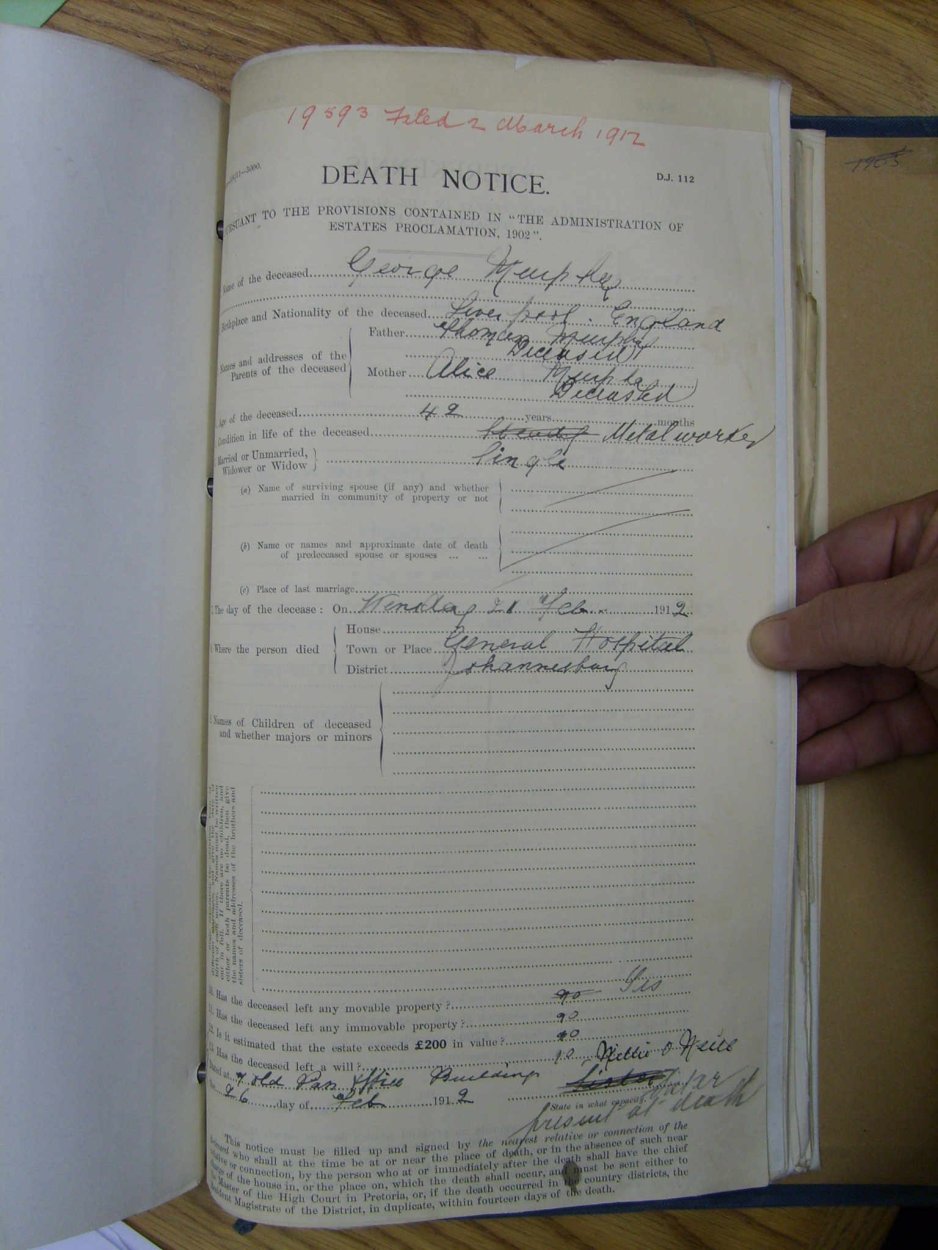 19593 Filed 2 March 1912
1965
DEATH NOTICE.
D.J. 112
PURSUANT TO THE PROVISIONS CONTAINED IN "THE ADMINISTRATION OF
ESTATES PROCLAMATION, 1902".
Name of the deceased George Murphy
Birthplace and Nationality of the deceased Liverpool. England
Names and addresses of the Parents of the deceased
Father Thomas Murphy
Deceased
Mother Alice Murphy
Deceased
Age of the deceased 42 years months
Condition in life of the deceased Metal worker
Married or Unmarried, Widower or Widow Single
(a) Name of surviving spouse (if any) and whether
married in community of property or not
(b) Name or names and approximate date of death
of predeceased spouse or spouses ... ...
(c) Place of last marriage
The day of the decease: On 21 Feb 1912
Where the person died
House
Town or Place General Hospital
District Johannesburg
Names of Children of deceased
and whether majors or minors
either or both parents be dead, then give
the names and addresses of the brothers and
sisters of deceased.
10. Has the deceased left any movable property? no Yes
11. Has the deceased left any immovable property? no
12. Is it estimated that the estate exceeds £200 in value? no
13. Has the deceased left a will? no
Nellie O Neill
Dated at 7 old Pass Office Buildings
the 26 day of Feb 1912
State in what capacity
present at death
This notice must be filled up and signed by the nearest relative or connection of the
deceased who shall at the time be at or near the place of death, or in the absence of such near
relative or connection, by the person who at or immediately after the death shall have the chief
charge of the house in, or the place on, which the death shall occur, and must be sent either to
the Master of the High Court in Pretoria, or, if the death occurred in the country districts, the
Resident Magistrate of the District, in duplicate, within fourteen days of the death.